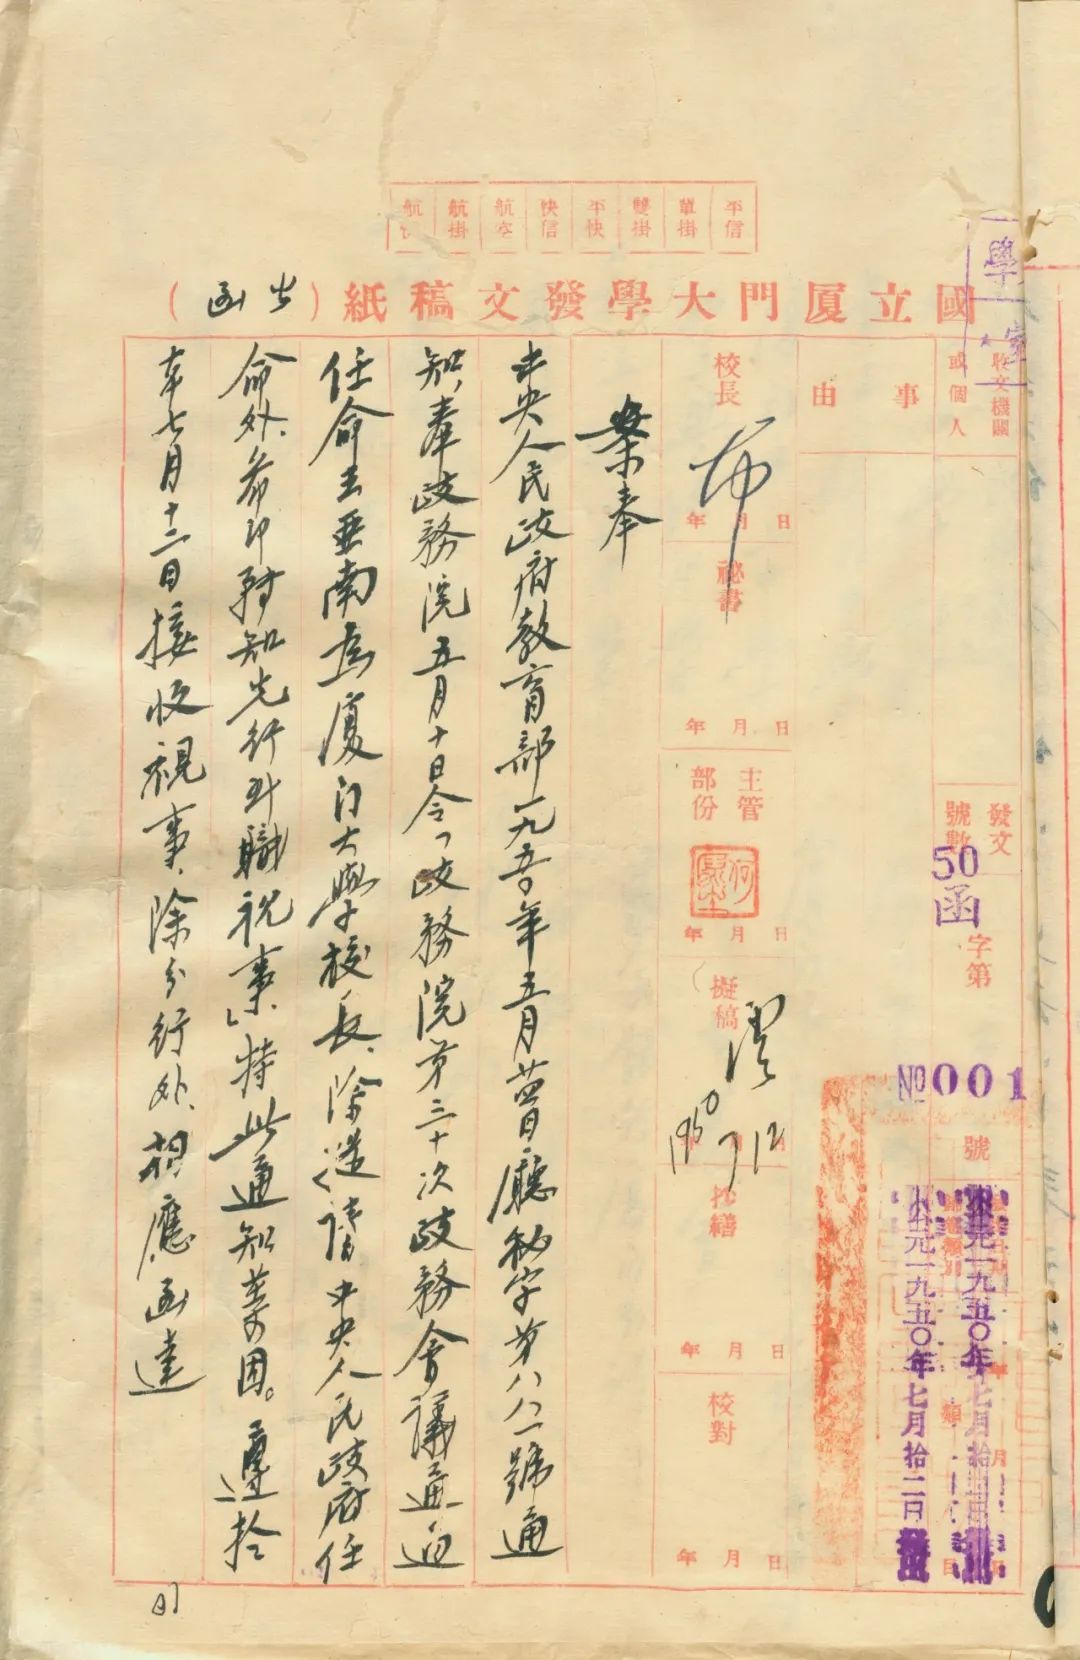 平信
單掛
雙掛
平快
快信
航空
航掛
國立厦門大學發文稿紙（公函）
學
收文機關
或個人
發文
號數
50
函
字第
№001
號
公元一九五〇年七月拾
公元一九五〇年七月拾二日
類
事由
校長
年月日
秘書
年月日
主管
部份
年月日
擬稿
1950 7/12
抄繕
年月日
校對
年月日
案奉
中央人民政府教育部一九五〇年五月 廳秘字第八八一號通
知，奉政務院五月十日令「政務院第三十次政務會議通過
任命王亞南為廈门大學校長、除送請中央人民政府任
命外，希即轉知先行到職視事」，特此通知等因。遵於
本七月十二日接收視事、除分行外、相應函達